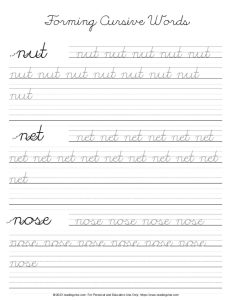 Forming Cursive Words
nut nut nut nut nut nut
nut nut nut nut nut nut nut
nut
net net net net net net
net net net net net net net net net
net
nose nose nose nose nose
nose nose nose nose nose nose
nose